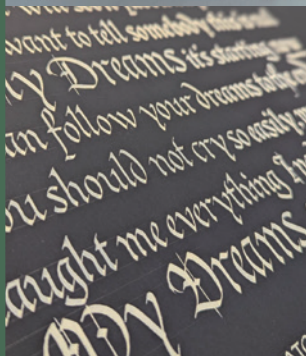 want to tell somebody this
My Dreams it's starting
an follow your dreams to the
ou should not cry so easily
aught me everything I
My Dreams